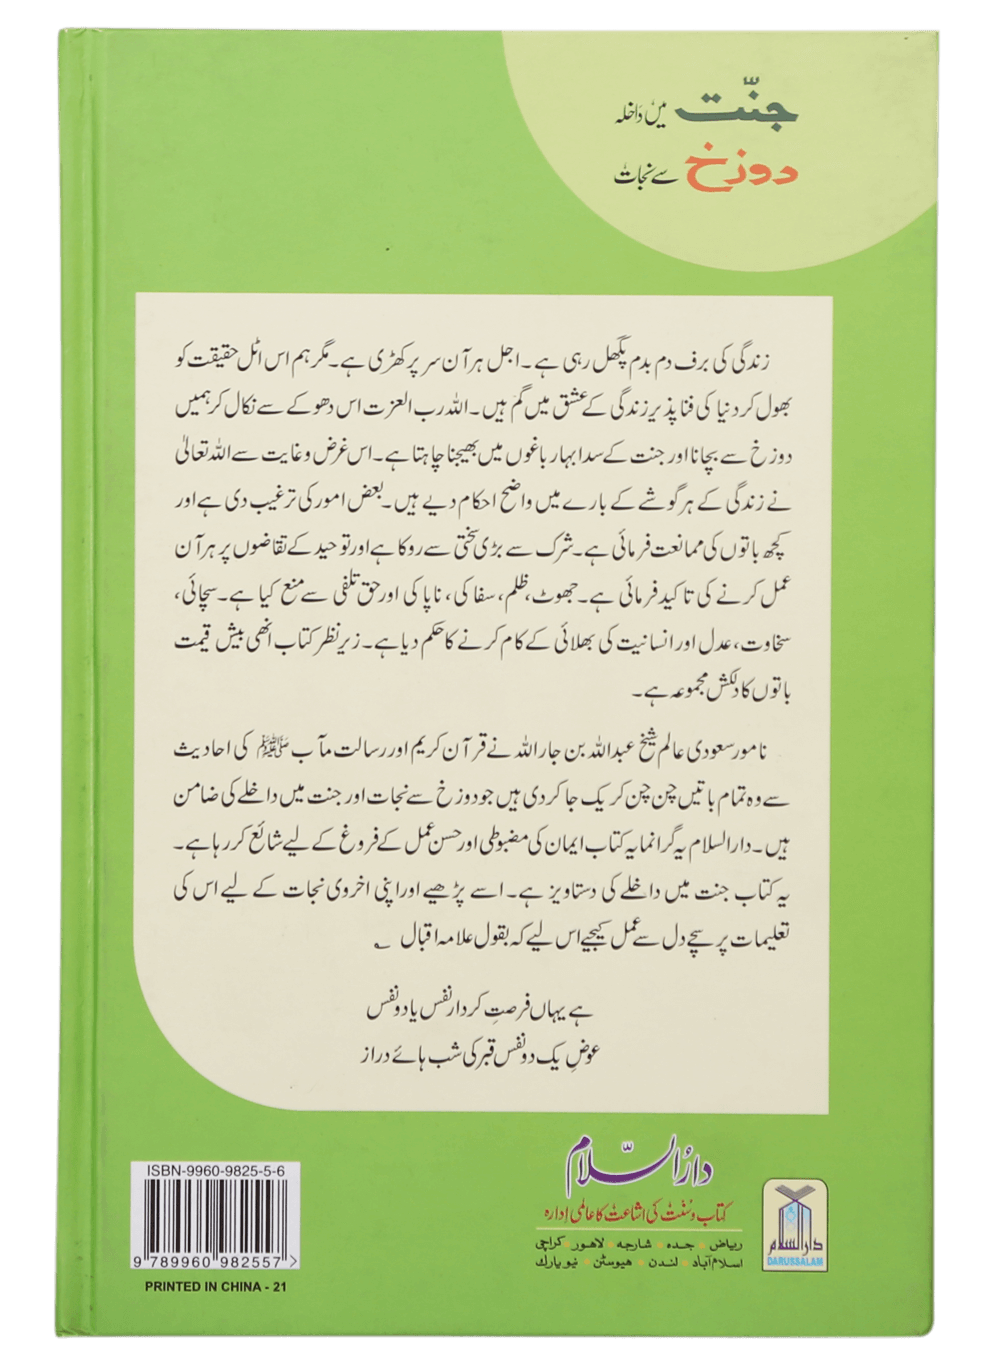 جنّت میں داخلہ
دوزخ سے نجات
زندگی کی برف دم بدم پگھل رہی ہے۔ اجل ہر آن سر پر کھڑی ہے۔ مگر ہم اس اٹل حقیقت کو
بھول کر دنیا کی فنا پذیر زندگی کے عشق میں گم ہیں۔ اللہ رب العزت اس دھوکے سے نکال کر ہمیں
دوزخ سے بچانا اور جنت کے سدا بہار باغوں میں بھیجنا چاہتا ہے۔ اس غرض و غایت سے اللہ تعالیٰ
نے زندگی کے ہر گوشے کے بارے میں واضح احکام دیے ہیں۔ بعض امور کی ترغیب دی ہے اور
کچھ باتوں کی ممانعت فرمائی ہے۔ شرک سے بڑی سختی سے روکا ہے اور توحید کے تقاضوں پر ہر آن
عمل کرنے کی تاکید فرمائی ہے۔ جھوٹ، ظلم، سفاکی، ناپاکی اور حق تلفی سے منع کیا ہے۔ سچائی،
سخاوت، عدل اور انسانیت کی بھلائی کے کام کرنے کا حکم دیا ہے۔ زیر نظر کتاب انھی بیش قیمت
باتوں کا دلکش مجموعہ ہے۔
نامور سعودی عالم شیخ عبداللہ بن جار اللہ نے قرآن کریم اور رسالت مآب ﷺ کی احادیث
سے وہ تمام باتیں چن چن کر یک جا کر دی ہیں جو دوزخ سے نجات اور جنت میں داخلے کی ضامن
ہیں۔ دارالسلام یہ گرانمایہ کتاب ایمان کی مضبوطی اور حسن عمل کے فروغ کے لیے شائع کر رہا ہے۔
یہ کتاب جنت میں داخلے کی دستاویز ہے۔ اسے پڑھیے اور اپنی اخروی نجات کے لیے اس کی
تعلیمات پر سچے دل سے عمل کیجیے اس لیے کہ بقول علامہ اقبال ؎
ہے یہاں فرصتِ کردار نفس یا دو نفس
عوضِ یک دو نفس قبر کی شب ہائے دراز
دارُالسّلام
کتاب و سُنّت کی اشاعت کا عالمی ادارہ
ریاض • جدہ • شارجہ • لاہور • کراچی
اسلام آباد • لندن • ہیوسٹن • نیویارک
دارالسلام
DARUSSALAM
ISBN-9960-9825-5-6
9 789960 982557 >
PRINTED IN CHINA - 21